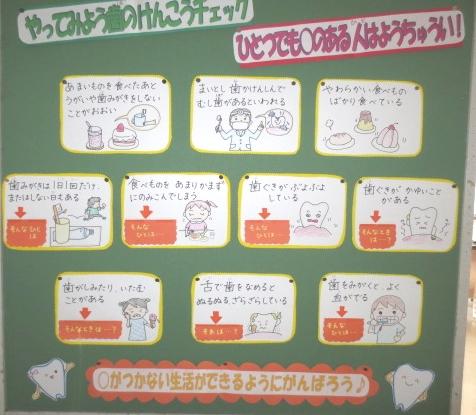 やってみよう歯のけんこうチェック
ひとつでも〇のある人はようちゅうい!
あまいものを食べたあと
うがいや歯みがきをしない
ことがおおい
まいとし歯かけんしんで
むし歯があるといわれる
やわらかい食べもの
ばかり食べている
歯みがきは1日1回だけ、
またはしない日もある
そんなひと
は
食べものをあまりかまず
にのみこんでしまう
そんな
ひとは…
歯ぐきがぶよぶよ
している
そんな
ひとは…
歯ぐきがかゆいこと
がある
そんなとき
は…?
歯がしみたり、いたむ
ことがある
そんなときは…?
舌で歯をなめると
ぬるぬる、ざらざらしている
それは…?
歯をみがくと、よく
血がでる
そんな
ひとは…
〇がつかない生活ができるようにがんばろう♪